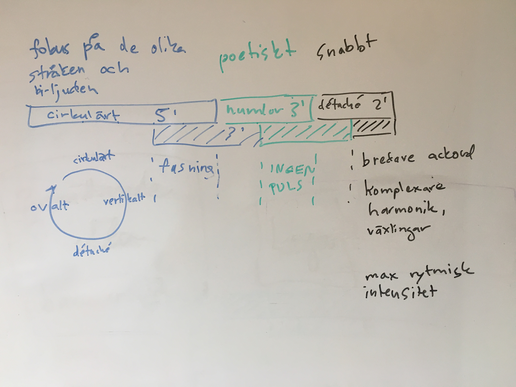 fokus på de olika
stråken och
bi-ljuden
poetiskt
snabbt
cirkulärt 5'
numror 3'
détaché 2'
3'
fasning
INGEN
PULS
bredare ackord
komplexare
harmonik,
växlingar
max rytmisk
intensitet
cirkulärt
ovalt
vertikalt
détaché